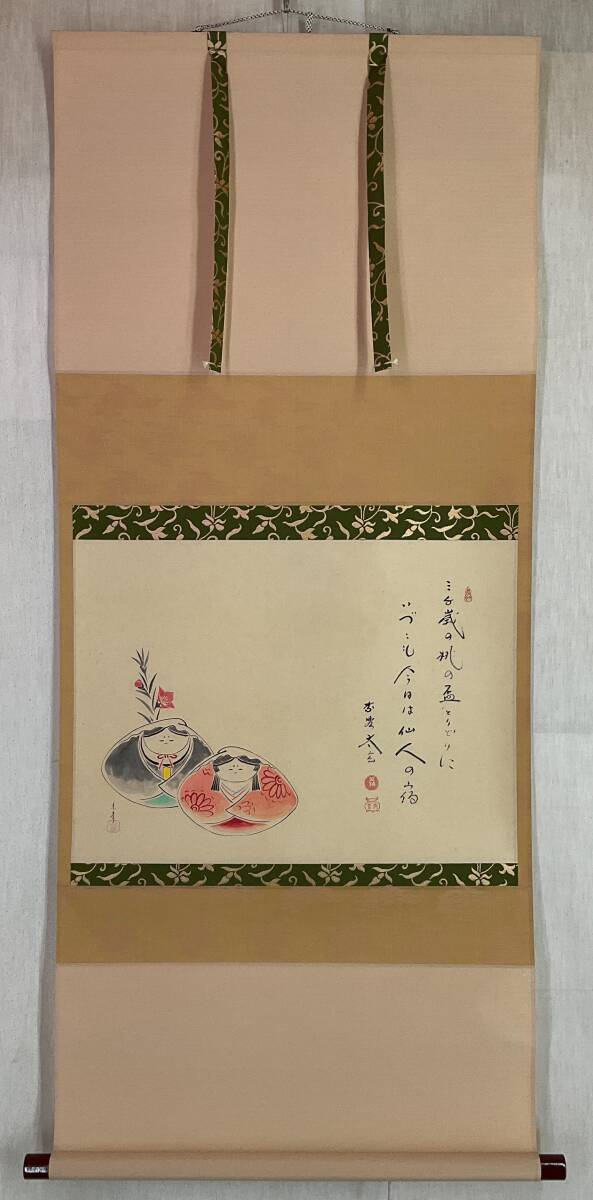 三千歳の桃の盃とりどりに
いづこも今日は仙人の宿